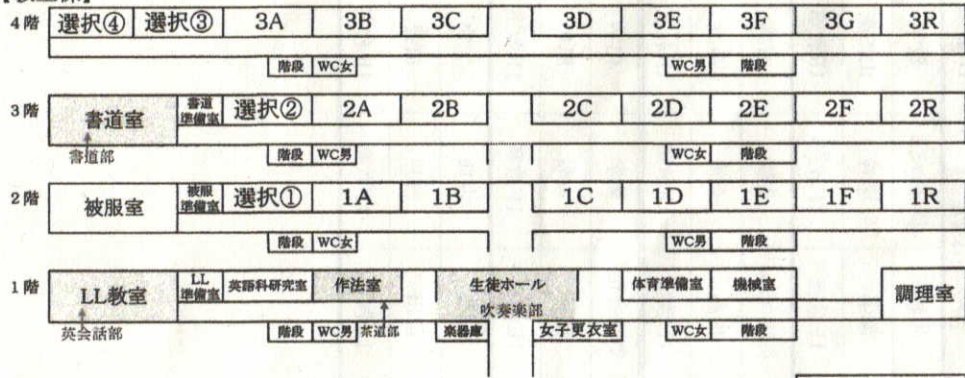 4階 選択④ 選択③ 3A 3B 3C 3D 3E 3F 3G 3R
階段 WC女 WC男 階段
3階 書道室 書道準備室 選択② 2A 2B 2C 2D 2E 2F 2R
書道部 階段 WC男 WC女 階段
2階 被服室 被服準備室 選択① 1A 1B 1C 1D 1E 1F 1R
階段 WC女 WC男 階段
1階 LL教室 LL準備室 英語科研究室 作法室 生徒ホール 体育準備室 機械室 調理室
吹奏楽部
英会話部 階段 WC男 茶道部 楽器庫 女子更衣室 WC女 階段